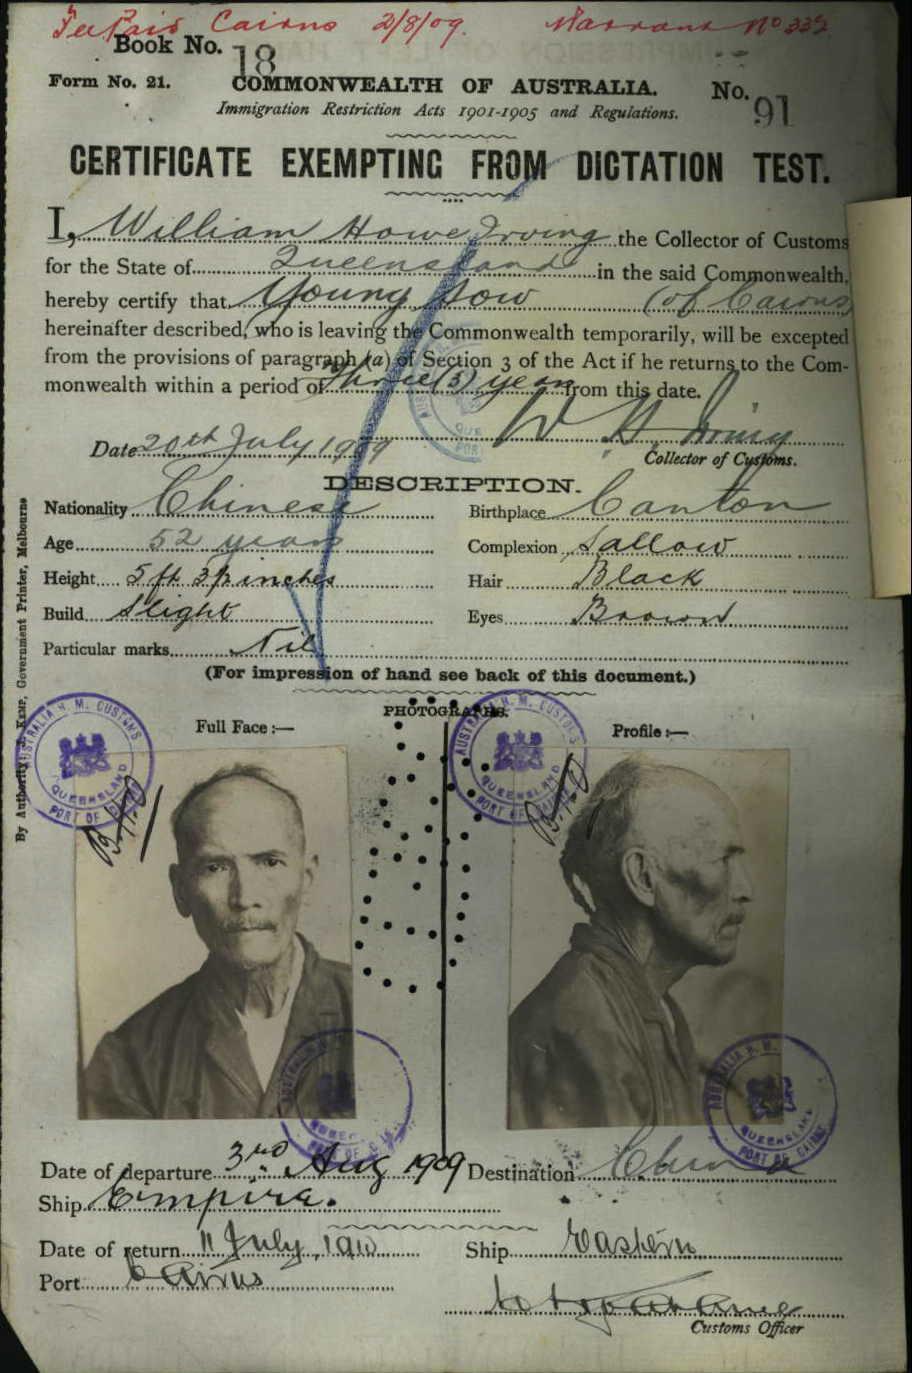 Fee Paid Cairns 2/8/09. Warrant No 332
Book No. 18
Form No. 21. COMMONWEALTH OF AUSTRALIA. No. 91
Immigration Restriction Acts 1901-1905 and Regulations.
CERTIFICATE EXEMPTING FROM DICTATION TEST.
I, William Howe Irving the Collector of Customs
for the State of Queensland in the said Commonwealth,
hereby certify that Young Sow (of Cairns)
hereinafter described, who is leaving the Commonwealth temporarily, will be excepted
from the provisions of paragraph (a) of Section 3 of the Act if he returns to the Com-
monwealth within a period of three (3) years from this date.
W H Irving
Date 20th July 1909
Collector of Customs.
DESCRIPTION.
Nationality Chinese Birthplace Canton
Age 52 years Complexion Sallow
Height 5 ft 3½ inches Hair Black
Build Slight Eyes Brown
Particular marks Nil
(For impression of hand see back of this document.)
PHOTOGRAPHS.
Full Face :— Profile :—
AUSTRALIA H. M. CUSTOMS
QUEENSLAND
PORT OF CAIRNS
AUSTRALIA H. M. CUSTOMS
QUEENSLAND
PORT OF CAIRNS
QUEENSLAND
PORT OF CAIRNS
By Authority: J. KEMP, Government Printer, Melbourne
Date of departure 3rd Aug 1909 Destination China
Ship Empire.
Date of return 11 July, 1910 Ship Eastern
Port Cairns
Customs Officer